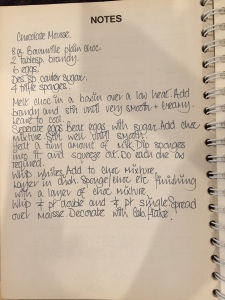 NOTES
Chocolate Mousse.
8oz Bournville plain choc.
2 tablesp. brandy.
6 eggs.
Des.sp caster sugar.
4 trifle sponges.
Melt choc in a basin over a low heat. Add
brandy and stir until very smooth & creamy.
Leave to cool.
Separate eggs. Beat eggs with sugar. Add choc
mixture. Stir well until smooth.
Heat a tiny amount of milk. Dip sponges
into it and squeeze out. Do each one as
required.
Whip whites. Add to choc mixture.
Layer in dish. Sponge/choc etc finishing
with a layer of choc mixture.
Whip ¼ pt double and ¼ pt single. Spread
over mousse. Decorate with Cab. Flake.